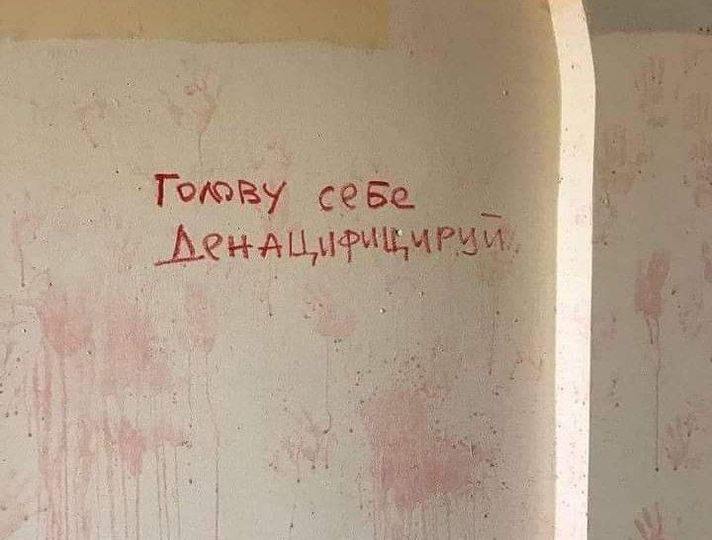 Голову себе
денацифицируй